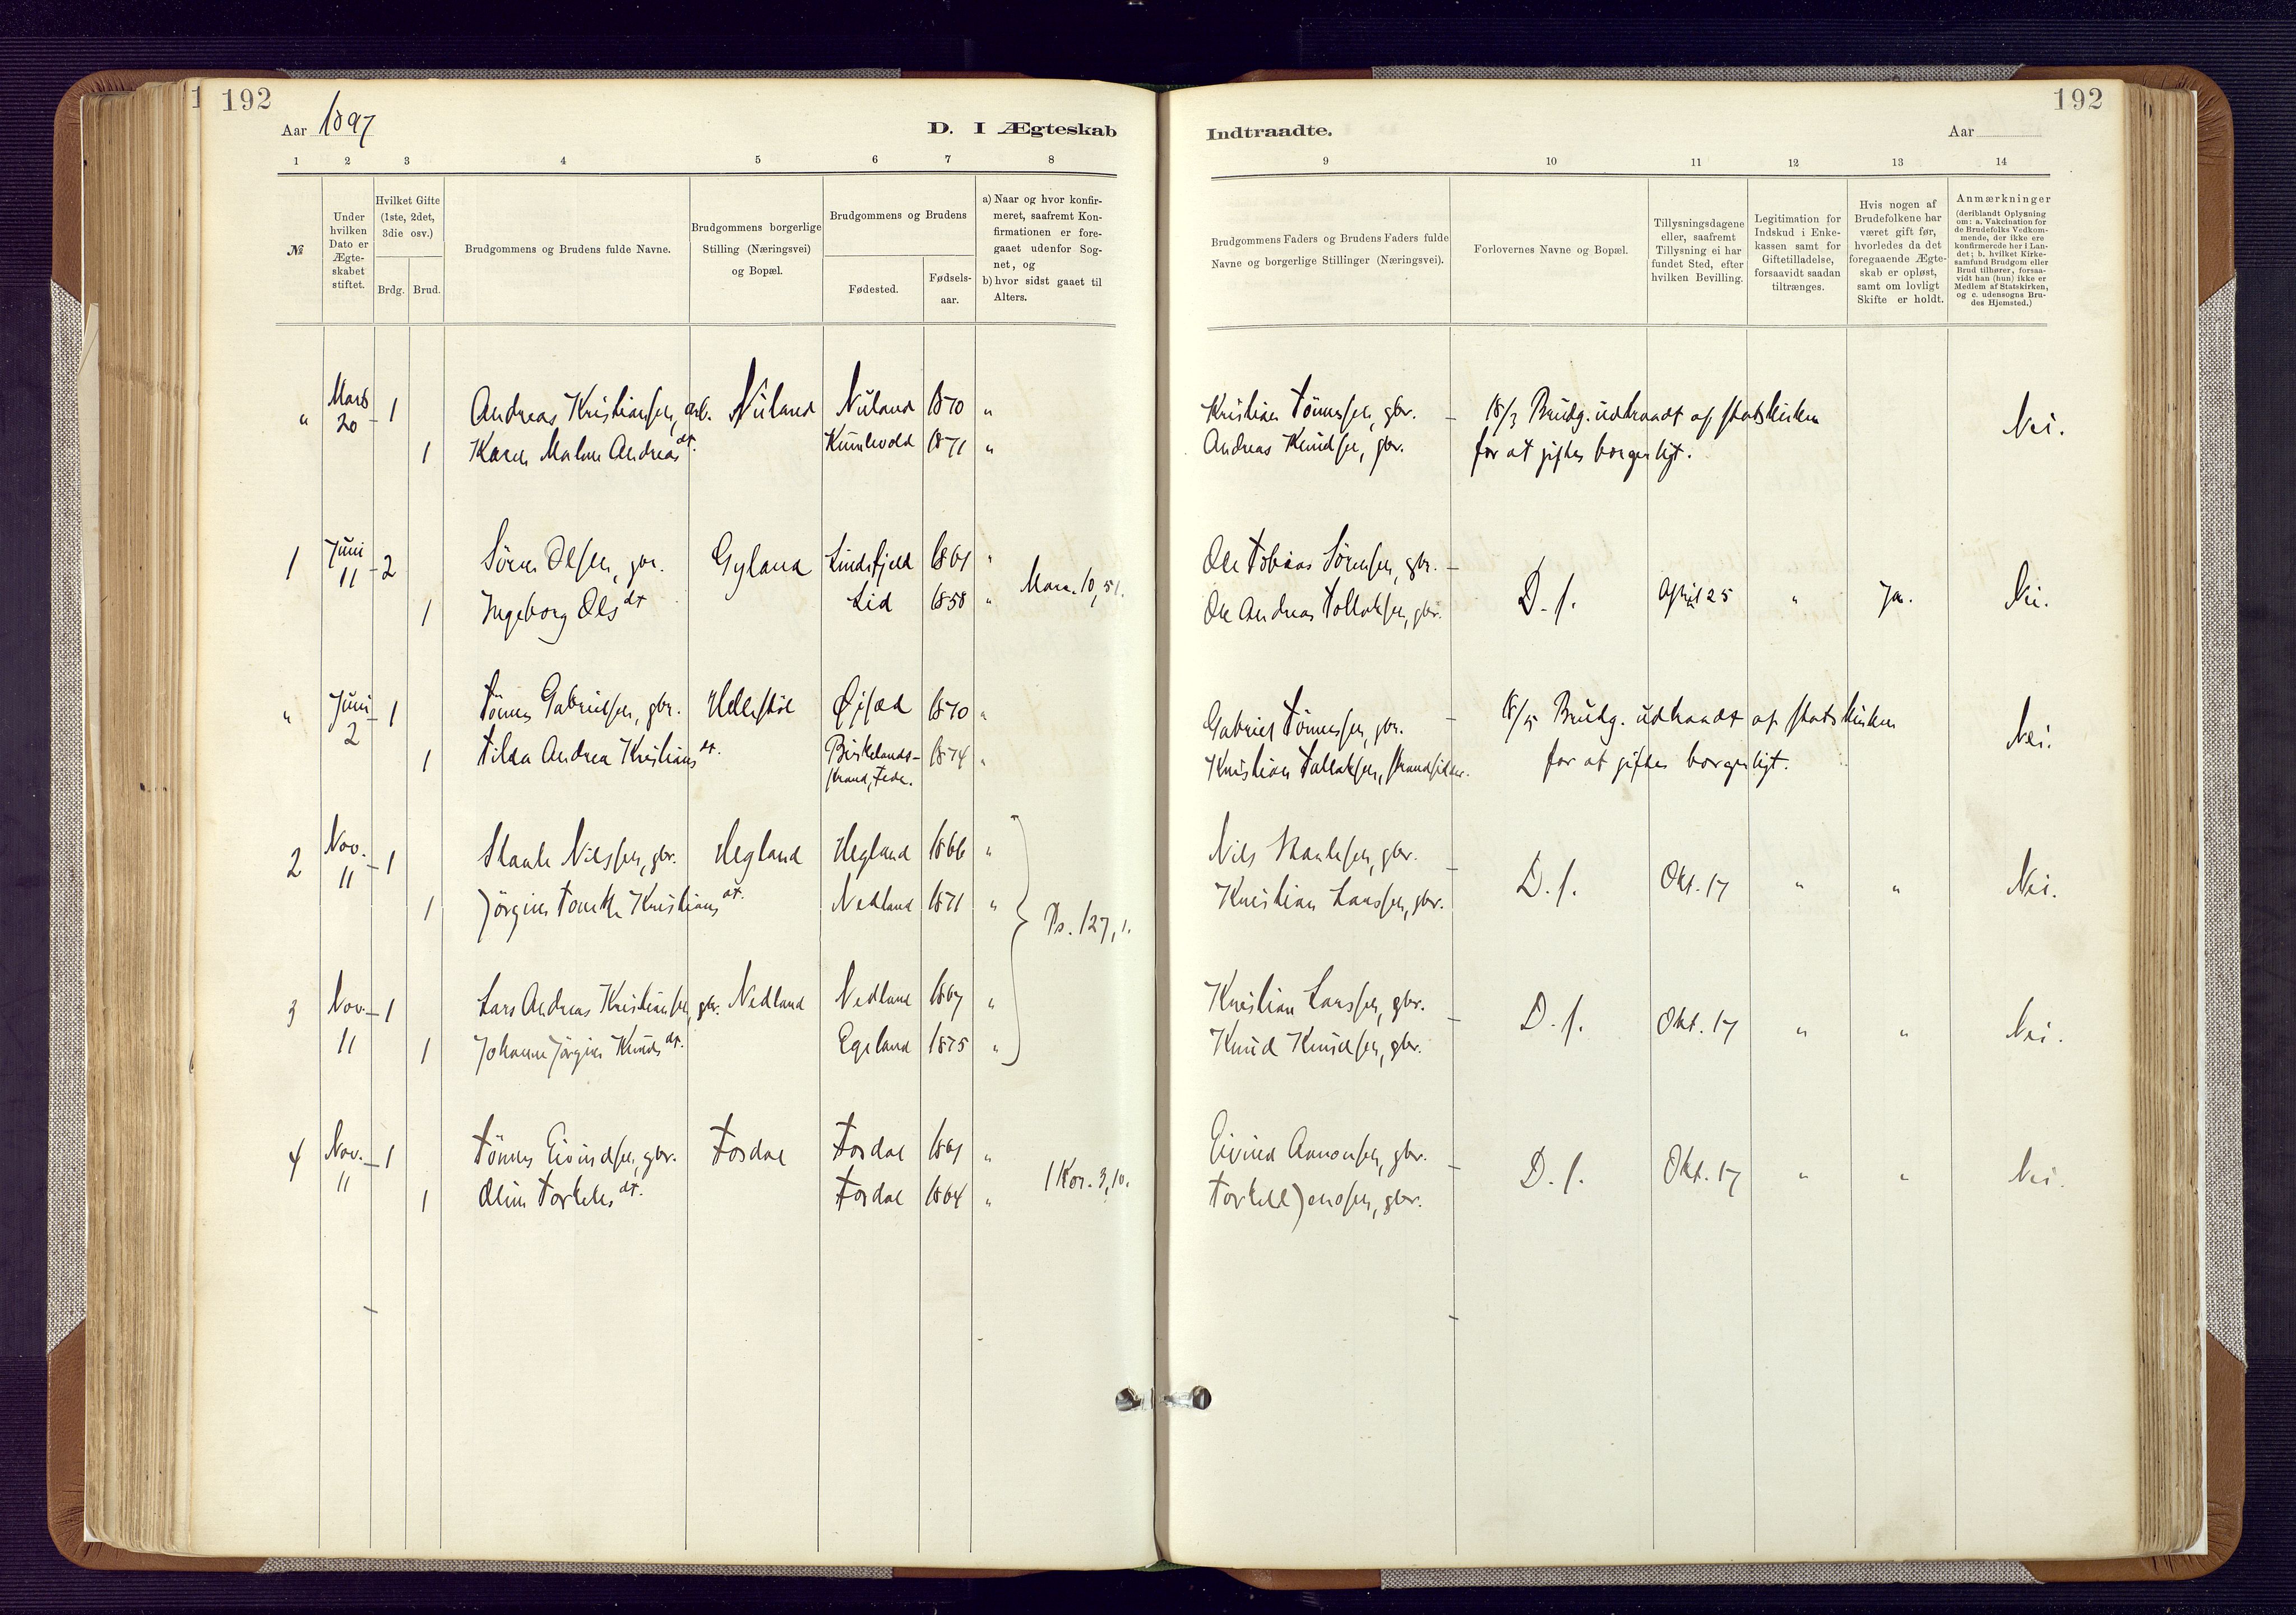 192
Aar 1897
D. I Ægteskab
1 2 3 4 5 6 7 8
№
Under hvilken Dato er Ægteskabet stiftet.
Hvilket Gifte (1ste, 2det, 3die osv.)
Brdg. Brud.
Brudgommens og Brudens fulde Navne.
Brudgommens borgerlige Stilling (Næringsvei) og Bopæl.
Brudgommens og Brudens
Fødested.
Fødsels-aar.
a) Naar og hvor konfir-
meret, saafremt Kon-
firmationen er fore-
gaaet udenfor Sog-
net, og
b) hvor sidst gaaet til
Alters.
" Mars 20 1 Andreas Kristiansen, arb. Nuland Nuland 1870 "
1 Karen Malene Andreasdt. 1871 "
1 Juni 11 2 Sören Olsen, gbr. Gyland Lindsfjeld "
1 Ingeborg Olsdt Lid 1858 "
" Juni 2 1 Tönnes Gabrielsen, gbr. 1870 "
1 Tilda Andrea Kristiansdt. Birkelands-
strand, Fede. 1874 "
2 Nov. 11 1 Staale Nilssen, gbr. Hegland Hegland 1866 "
1 Jörgine Kristiansdt. Nedland 1871 "
Ps. 127, 1.
3 Nov. 11 1 Lars Andreas Kristiansen, gbr. Nedland Nedland 1867 "
1 Johanne Jörgine Knudsdt. Egeland 1875 "
4 Nov. 11 1 Tönnes Eivindsen, gbr. Fosdal Fosdal "
1 Oline Torkelsdt. Fosdal 1864 "
1 Kor. 3, 10.
192
Indtraadte.
Aar
9 10 11 12 13 14
Brudgommens Faders og Brudens Faders fulde
Navne og borgerlige Stillinger (Næringsvei).
Forlovernes Navne og Bopæl.
Tillysningsdagene
eller, saafremt
Tillysning ei har
fundet Sted, efter
hvilken Bevilling.
Legitimation for
Indskud i Enke-
kassen samt for
Giftetilladelse,
forsaavidt saadan
tiltrænges.
Hvis nogen af
Brudefolkene har
været gift før,
hvorledes da det
foregaaende Ægte-
skab er opløst,
samt om lovligt
Skifte er holdt.
Anmærkninger
(deriblandt Oplysning
om: a. Vakcination for
de Brudefolks Vedkom-
mende, der ikke ere
konfirmerede her i Lan-
det; b. hvilket Kirke-
samfund Brudgom eller
Brud tilhører, forsaa-
vidt han (hun) ikke er
Medlem af Statskirken,
og c. udensogns Bru-
des Hjemsted.)
Kristian Tönnessen, gbr. 18/3 Brudg. udtraadt af statskirken
Andreas Knudsen, gbr. for at giftes borgerligt. Nei.
Ole Tobias Sörensen, gbr.
Ole Andreas Tollaksen, gbr. D. s. April 25 " Ja. Nei.
Gabriel Tönnessen, gbr. 18/5 Brudg. udtraadt af statskirken
Kristian Tallaksen, strandsidder. for at giftes borgerligt. Nei.
Nils Staalesen, gbr.
Kristian Larssen, gbr. D. s. Okt. 17 " " Nei.
Kristian Larssen, gbr.
Knud Knudsen, gbr. D. s. Okt. 17 " " Nei.
Eivind Aanonsen, gbr.
Torkell Jenssen, gbr. D. s. Okt. 17 " " Nei.